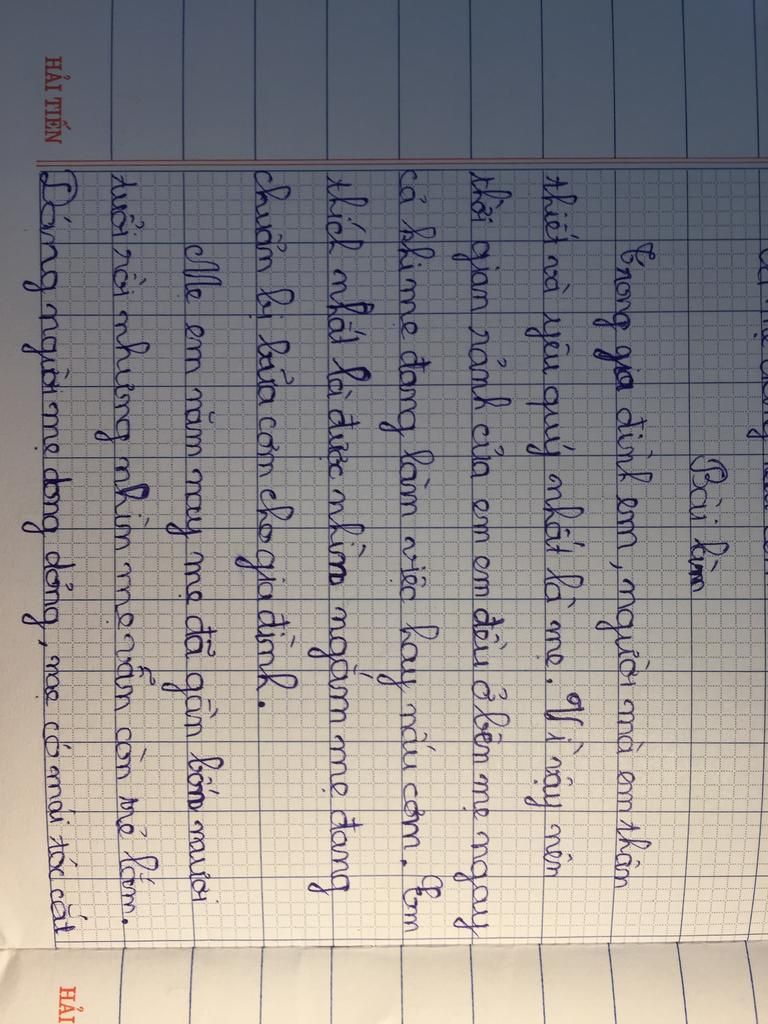 Bài làm
Trong gia đình em, người mà em thân
thiết và yêu quý nhất là mẹ. Vì vậy nên
thời gian rảnh của em em đều ở bên mẹ ngay
cả khi mẹ đang làm việc hay nấu cơm. Em
thích nhất là được nhìn ngắm mẹ đang
chuẩn bị bữa cơm cho gia đình.
Mẹ em năm nay mẹ đã gần bốn mươi
tuổi rồi nhưng nhìn mẹ vẫn còn trẻ lắm.
Dáng người mẹ dong dỏng, mẹ có mái tóc cắt
HẢI TIẾN
HẢI